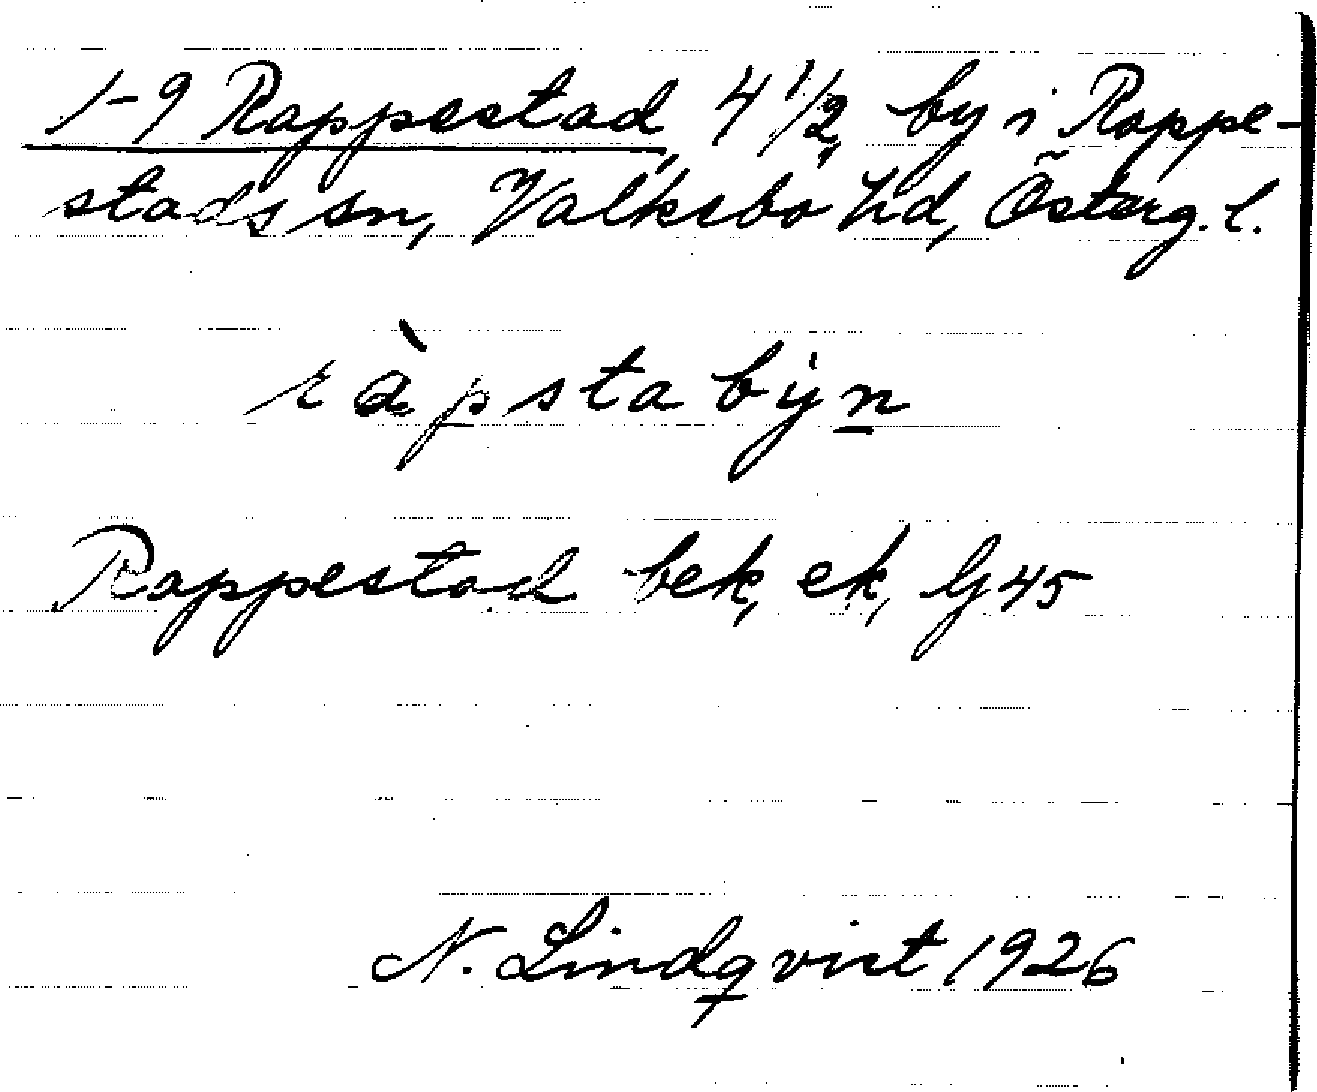 1-9 Rappestad, 4 1/2, by i Rappe-
stads sn, Valkebo hd, Österg. l.
ràpstabyn
Rappestad bek, ek, Gj 45
N. Lindqvist 1926